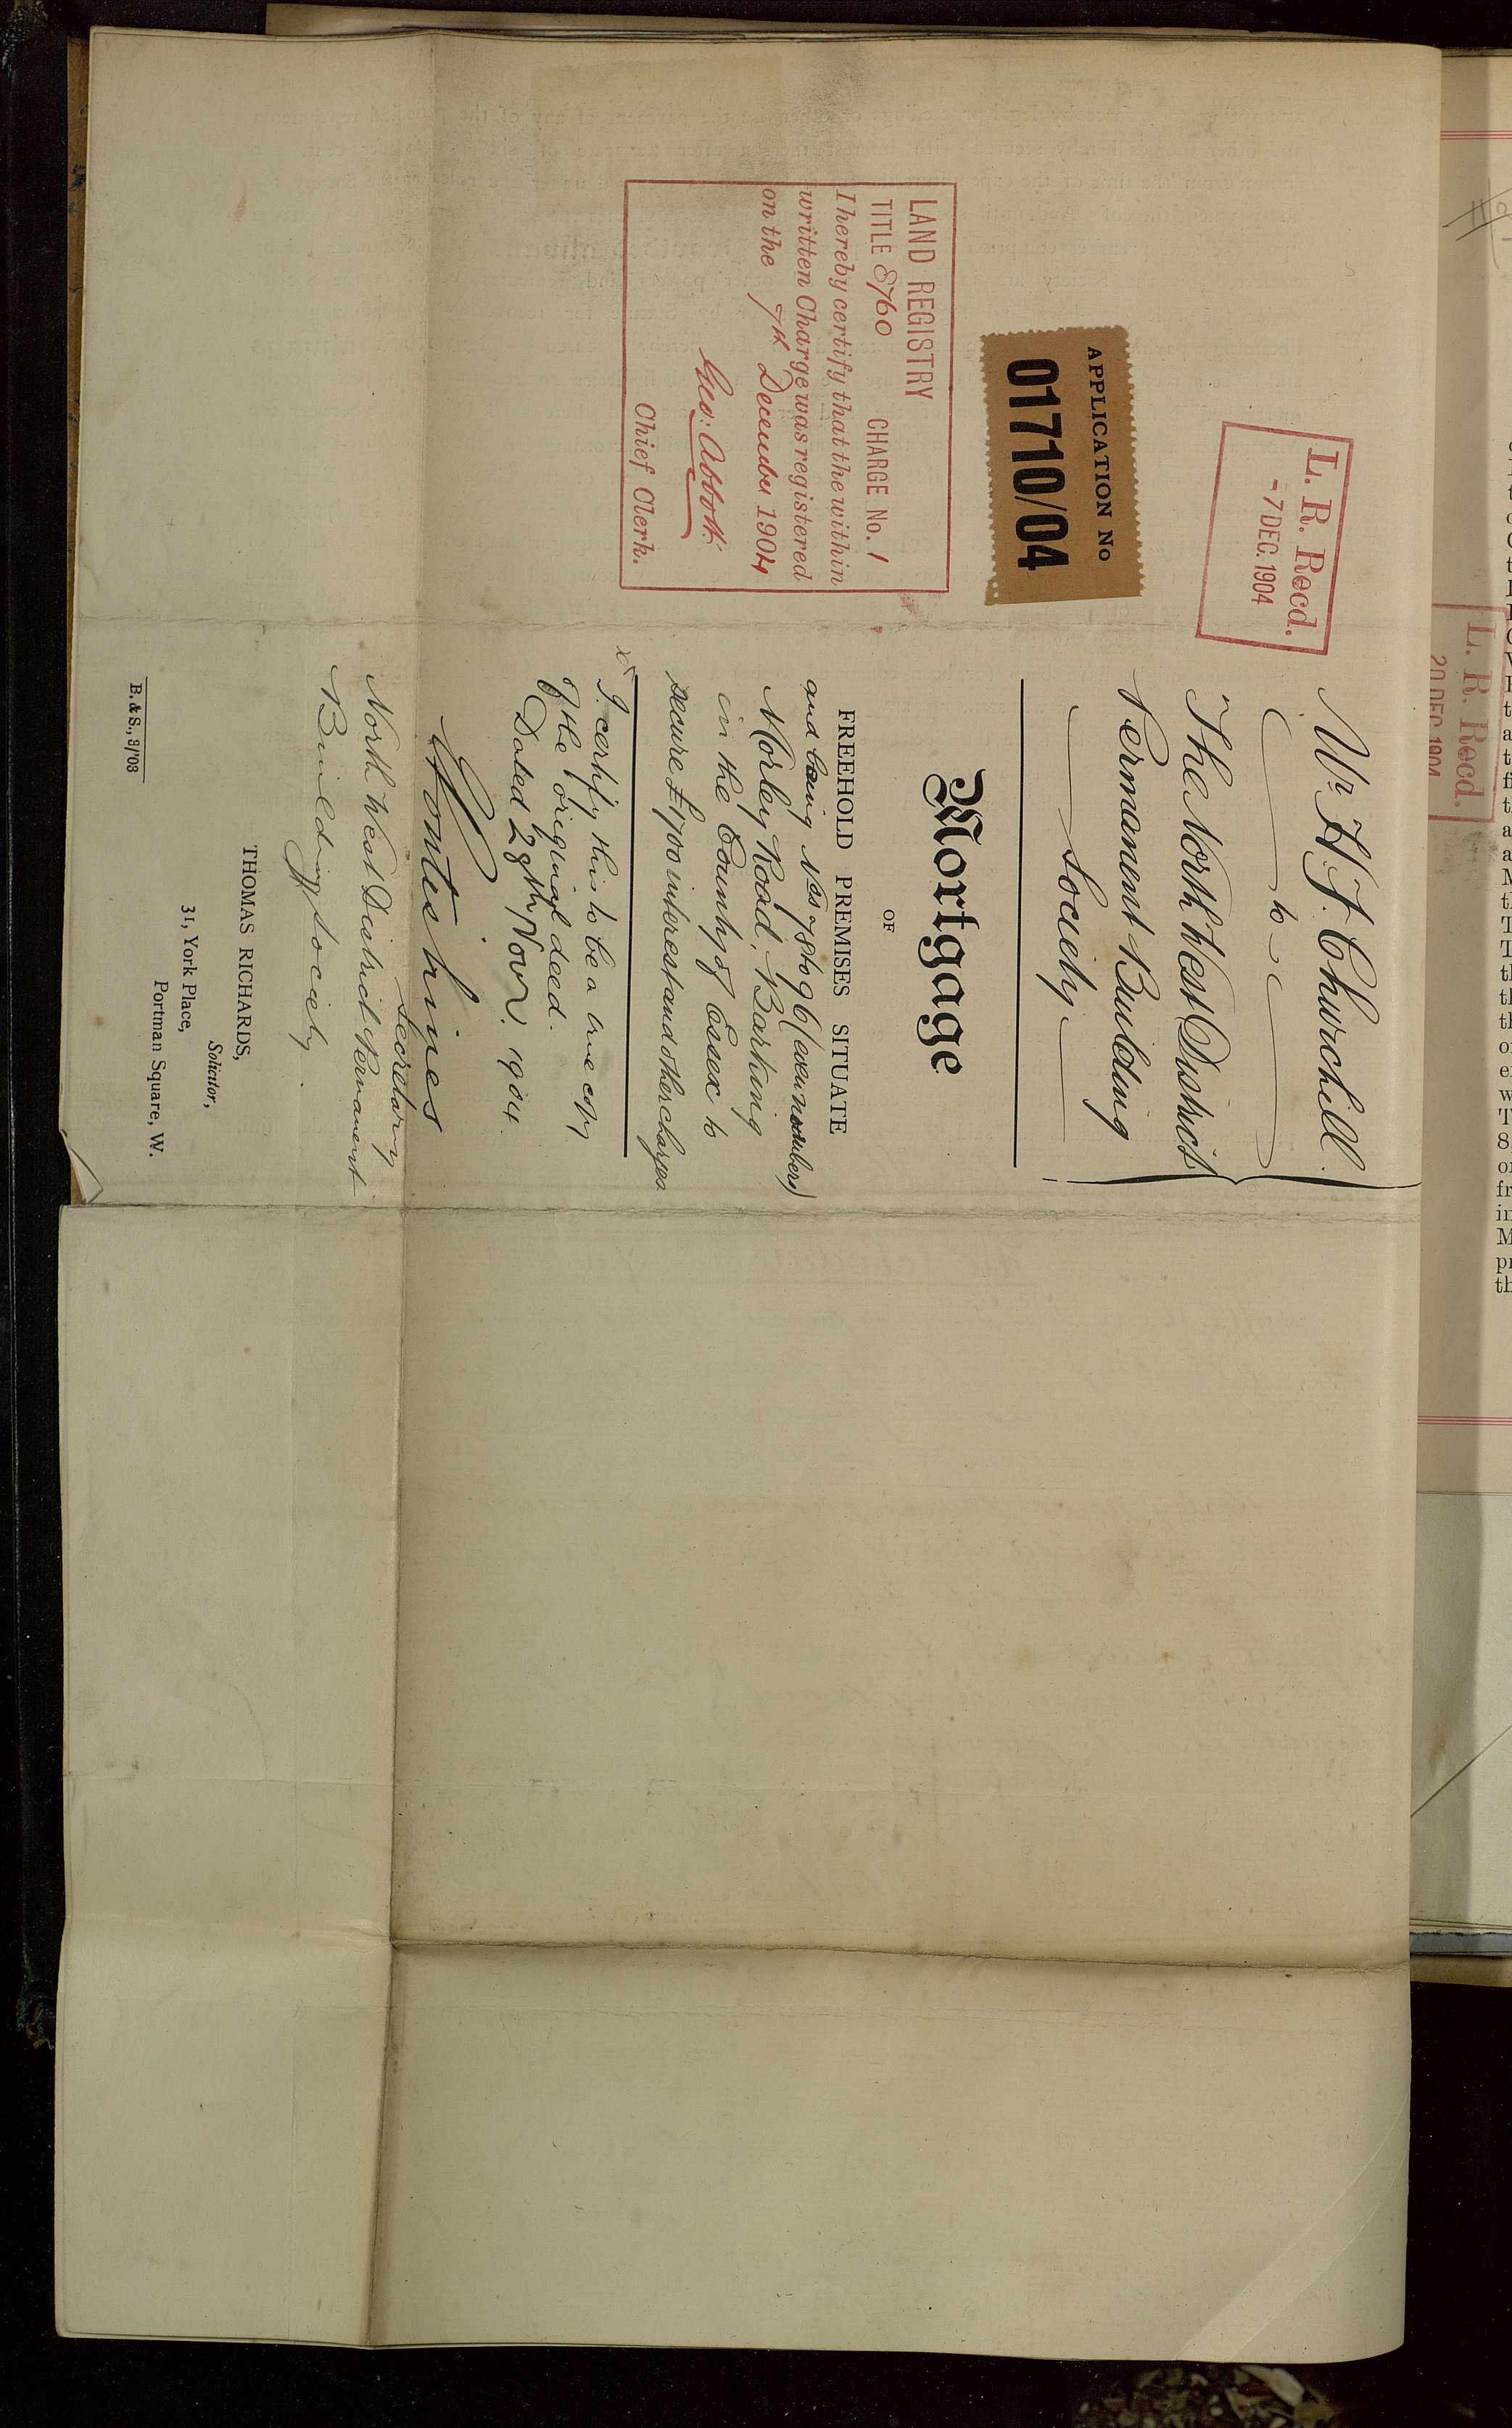 L. R. Recd.
-7 DEC. 1904
APPLICATION No
01710/04
LAND REGISTRY
TITLE 8760 CHARGE No. 1
I hereby certify that the within
written Charge was registered
on the 7th December 1904
Geo: Abbott
Chief Clerk.
Mr. H. J. Churchill
to
The North West District
Permanent Building
Society.
Mortgage
OF
FREEHOLD PREMISES SITUATE
and being Nos 78 to 96 (even numbers)
Morley Road, Barking
in the County of Essex to
secure £1700 interest and other charges
I certify this to be a true copy
of the original deed.
Dated 28th Novr. 1904
Secretary
North West District Permanent
Building Society.
THOMAS RICHARDS,
Solicitor,
31, York Place,
Portman Square, W.
B. & S., 3/'03
L. R. Recd.
20 DEC. 1904